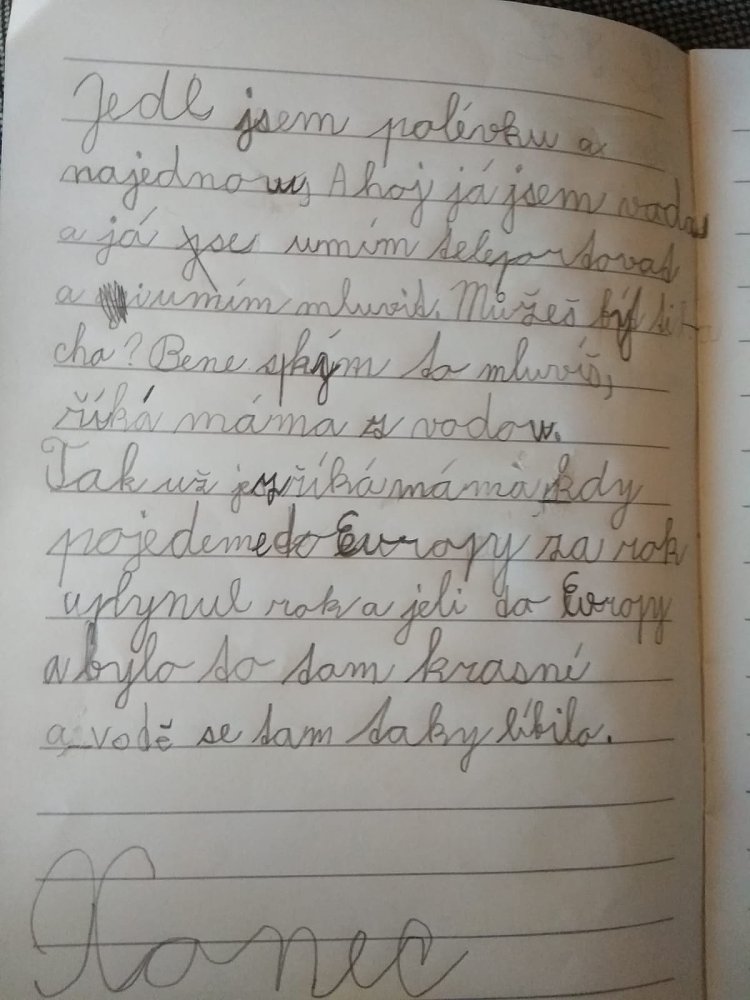 Jedl jsem polévku a
najednou, Ahoj já jsem voda
a já jse umím teleportovat
a i umím mluvit. Můžeš být ti
cha? Bene s kým to mluvíš,
říká máma s vodou.
Tak už je říká máma, kdy
pojedeme do Evropy za rok
uplynul rok a jeli do Evropy
a bylo to tam krasné
a vodě se tam taky líbilo.
Konec